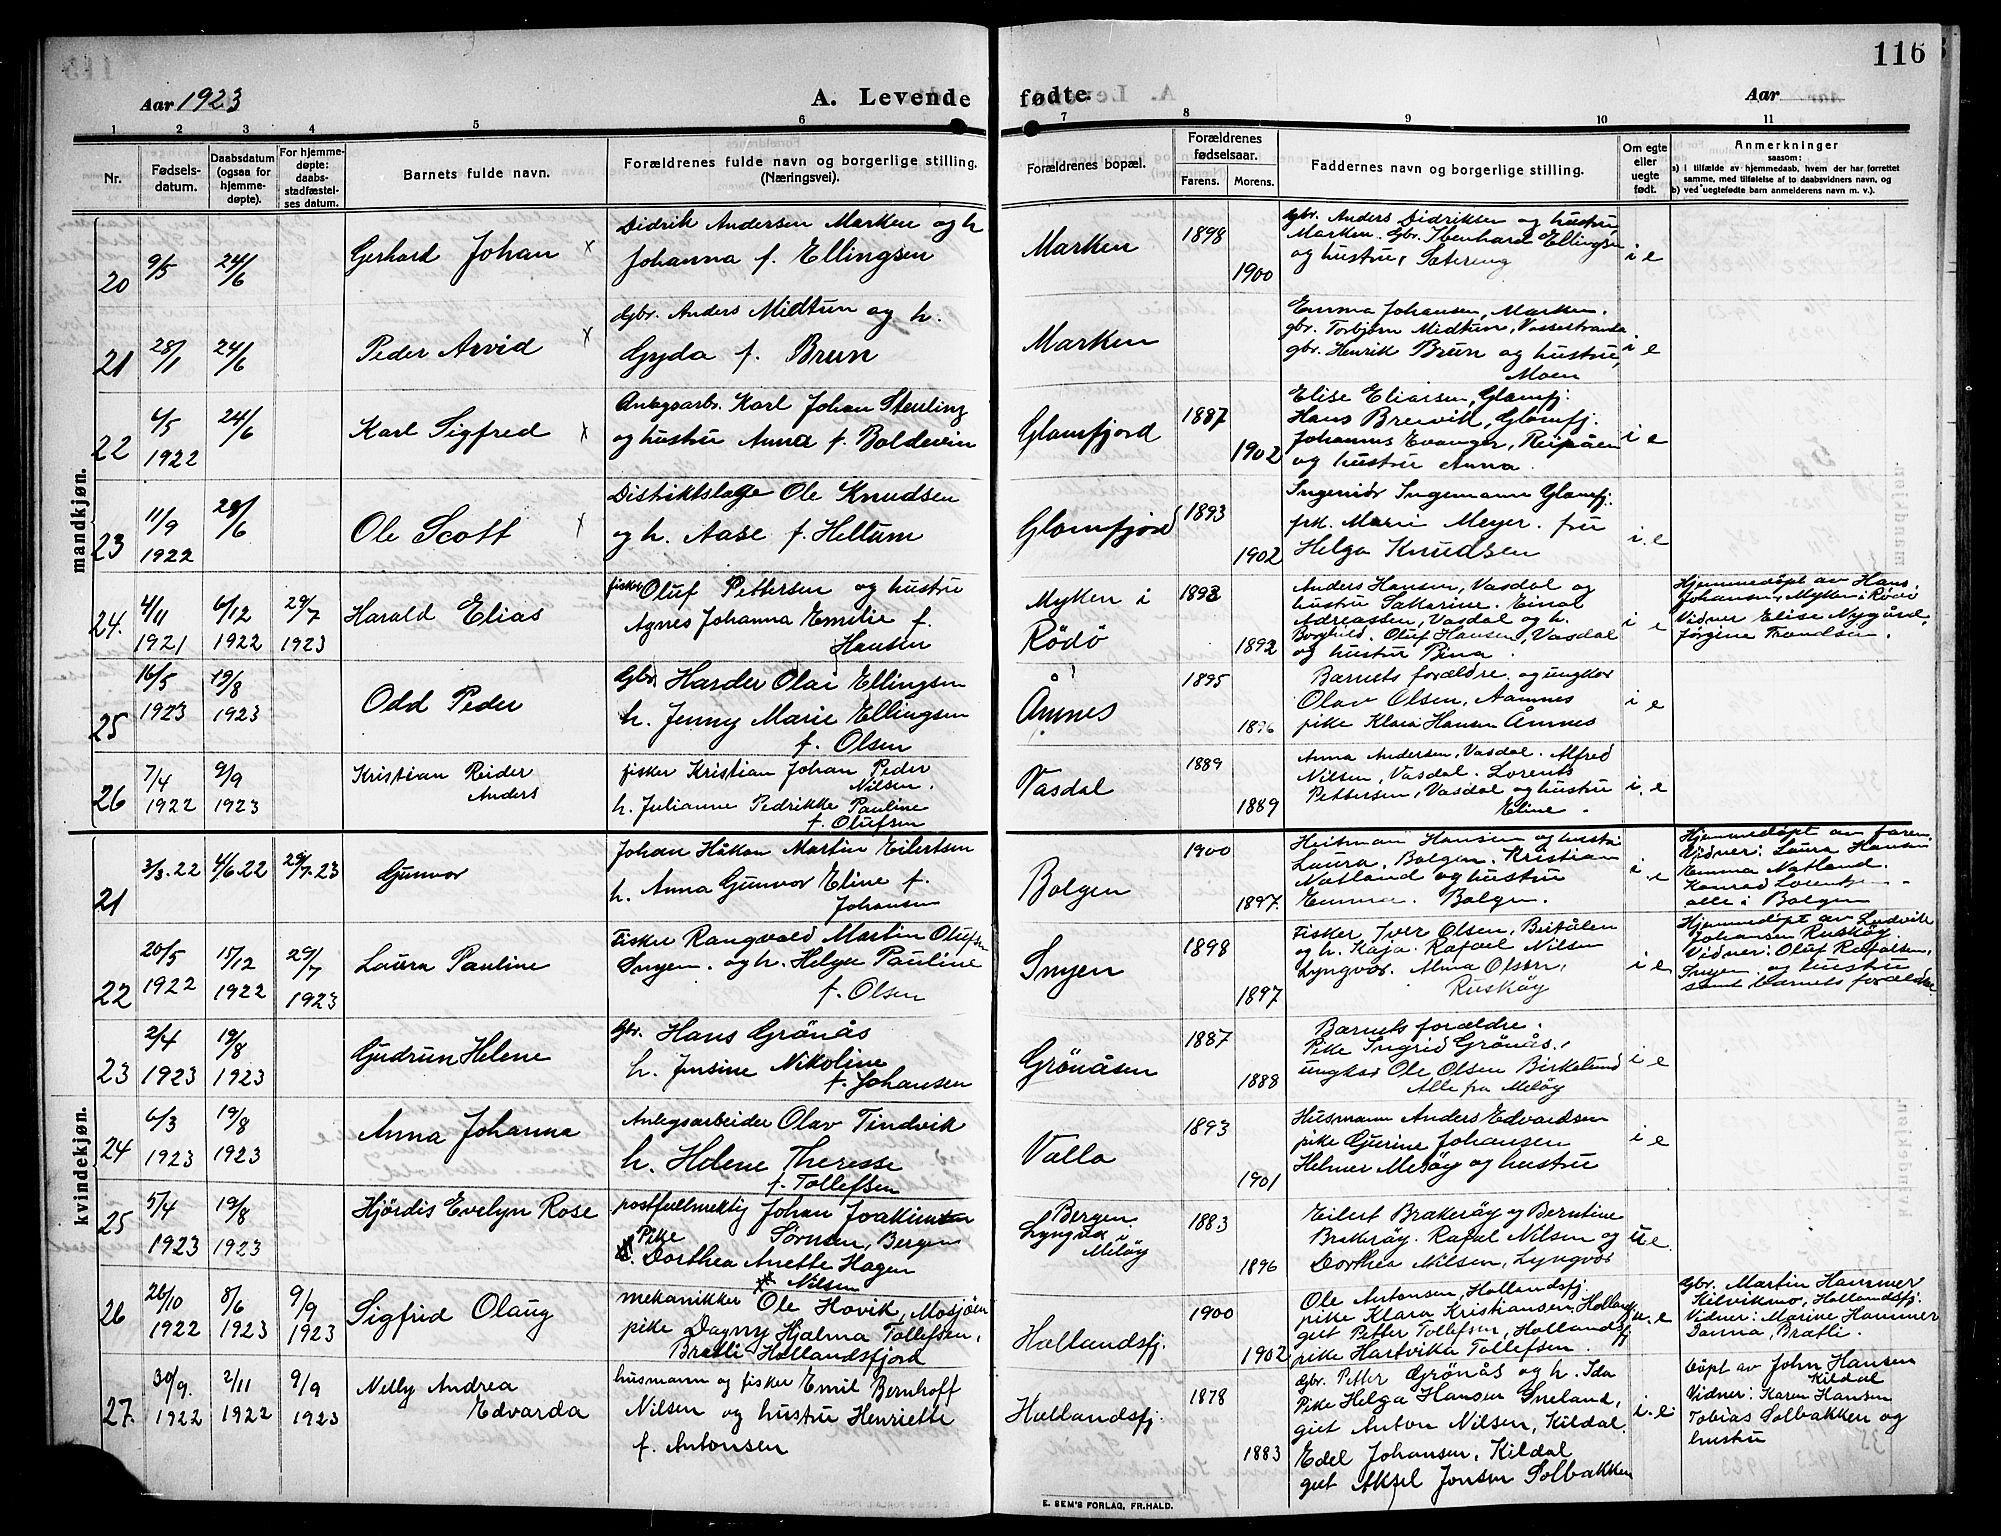 116
Aar 1923
A. Levende fødte.
Aar
1 2 3 4 5 6 7 8 9 10 11
Nr.
Fødsels-datum.
Daabsdatum (ogsaa for hjemme-døpte).
For hjemme-døpte: daabs-stadfæstel-ses datum.
Barnets fulde navn.
Forældrenes fulde navn og borgerlige stilling. (Næringsvei).
Forældrenes bopæl.
Forældrenes fødselsaar.
Farens. Morens.
Faddernes navn og borgerlige stilling.
Om egte eller uegte født.
Anmerkninger
saasom:
a) i tilfælde av hjemmedaab, hvem der har forrettet samme, med tilføielse af to daabsvidners navn, og
b) ved uegtefødte barn anmelderens navn m. v.).
mandkjøn.
20 9/5 24/6 Gerhard Johan x
Didrik Andersen Marken og h
Johanna f. Ellingsen
Marken 1898 1900
Gbr. Anders Didriksen og hustru
Marken. Gbr. Ibenhard Ellingsen
og hustru, Sætereng
i e
21 28/1 24/6 Peder Arvid x
Gbr. Anders Midtun og h.
Gyda f. Brun
Marken
Emma Johansen, Marken.
gbr. Torbjørn Midtun, Vassestranda
gbr. Henrik Brun og hustru,
Moen
i e
22 6/5 1922 24/6 Karl Sigfred x
Anlegsarb. Karl Johan Stenling
og hustru Anna f. Boldevin
Glomfjord 1887 1902
Elise Eliassen, Glomfj.
Hans Breivik, Glomfj.
Johannes Evanger, Reipåen
og hustru Anna.
i e
23 11/9 1922 28/6 Ole Scott x
Distriktslæge Ole Knudsen
og h. Aase f. Hellum
Glomfjord 1893 1902
Ingeniør Ingemann Glomfj.
frk. Marie Meyer. fru
Helga Knudsen
i. e
24. 4/11 1921 6/12 1922 29/7 1923 Harald Elias
fisker Oluf Pettersen og hustru
Agnes Johanna Emilie f.
Hansen
Myken i
Rödö
1892
Anders Hansen, Vasdal og
hustru Sakarine. Einal
Adreassen, Vasdal og h.
Borghild. Oluf Hansen, Vasdal
og hustru Bina.
i e
Hjemmedøpt av Hans
Johansen, Myken i Rödö
Vidner Elise Nygård,
Jørgine Trondsen.
25 16/5 1923 19/8 1923 Odd Peder
Gbr. Harder Olai Ellingsen
h. Jenny Marie Ellingsen
f. Olsen
Åmnes 1895 1896
Barnets forældre. og ungkar
Olav Olsen, Aamnes
pike Klara Hansen Åmnes
i e
26 7/4 1922 9/9 1923 Kristian Reider
Anders
fisker Kristian Johan Peder
Nilsen.
h. Julianne Pedrikke Pauline
f. Olufsen
Vasdal 1889 1889
Anna Andersen, Vasdal. Alfred
Nilsen, Vasdal. Lorents
Pettersen, Vasdal og hustru
Eline.
i. e
kvindekjøn.
21 3/3.22 4/6.22 29/7.23 Gunvor
Johan Håkon Martin Eilertsen
h. Anna Gunvor Eline f.
Johansen
Bolgen 1900 1897.
Heitman Hansen og hustru
Laura, Bolgen. Kristian
Natland og hustru
Emma. Bolgen.
i. e
Hjemmedøpt av faren.
Vidner: Laura Hansen
Emma Natland.
Konrad Lorentzen
alle i Bolgen
22 20/5 1922 15/12 1922 29/7 1923 Laura Pauline
Fisker Rangvald Martin Olufsen
Snyen. og h. Helga Pauline
f. Olsen
Snyen 1898 1897
Fisker Iver Olsen, Beitålen
og h. Kaja. Rafael Nilsen
Lyngvær. Alma Olsen,
Ruskøy
i e
Hjemmedøpt av Ludvik
Johansen Ruskøy.
Vidner: Oluf Rafalsen,
Snyen og hustru
samt barnets forældre.
23 2/4 1923 19/8 1923 Gudrun Helene
Gbr. Hans Grönås
h. Jensine Nikoline
f. Johansen
Grönåsen 1887 1888
Barnets forældre.
Pike Ingrid Grönås,
ungkar Ole Olsen Birkelund
Alle fra Meløy
i e
24 6/3 1923 19/8 1923 Anna Johanna
Anlegsarbeider Olav Tindvik
h. Helene Theresse
f. Tollefsen
Valla 1893 1901
Husmann Anders Edvardsen
pike Gjerine Johansen
Helmer Meløy og hustru
i e
25 5/4 1923 19/8 1923 Hjørdis Evelyn Rose
postfullmektig Johan Joakim
Sørnsen, Bergen
Pike
Dorthea Anette Hagen
Nilsen
Bergen
Lyngvær i
Meløy
1883 1896
Eilert Brakerøy og Berntine
Brakerøy. Rafael Nilsen og
Dorthea Nilsen, Lyngvær
u. e.
26 26/10 1922 8/6 1923 9/9 1923 Sigfrid Olaug
mekanikker Ole Hovik, Mosjøen
pike Dagny Hjalma Tollefsen,
Bratli Hollandsfjord
Hollandsfj. 1900 1902
Ole Antonsen, Hollandsfj.
pike Klara Kristiansen, Hollandsfj.
gut Petter Tollefsen, Hollandsfj
pike Hartvika Tollefsen.
u. e
Gbr. Martin Hammer
Kilvikmo, Hollandsfj.
Vidner: Marine Hammer
Danna, Bratli.
27. 30/9. 1922 2/11 1922 9/9 1923 Nelly Andrea
Edvarda
husmann og fisker Emil Bernhoff
Nilsen og hustru Henriette
f. Antonsen
Hollandsfj. 1878 1883
Gbr. Petter Grönås og h. Ida
Pike Helga Hansen Sneland,
gut Anton Nilsen, Kildal.
Edel Johansen, Kildal
gut Aksel Jonsen Solbakken
i. e.
Døpt av John Hansen
Kildal
Vidner: Karen Hansen
Tobias Solbakken og
hustru
E. SEM'S FORLAG, FR.HALD.